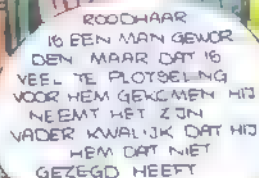 ROODHAAR
IS EEN MAN GEWOR
DEN MAAR DAT IS
VEEL TE PLOTSELNG
VOOR HEM GEKOMEN HIJ
NEEMT HET ZIJN
VADER KWALIJK DAT HIJ
HEM DAT NIET
GEZEGD HEEFT